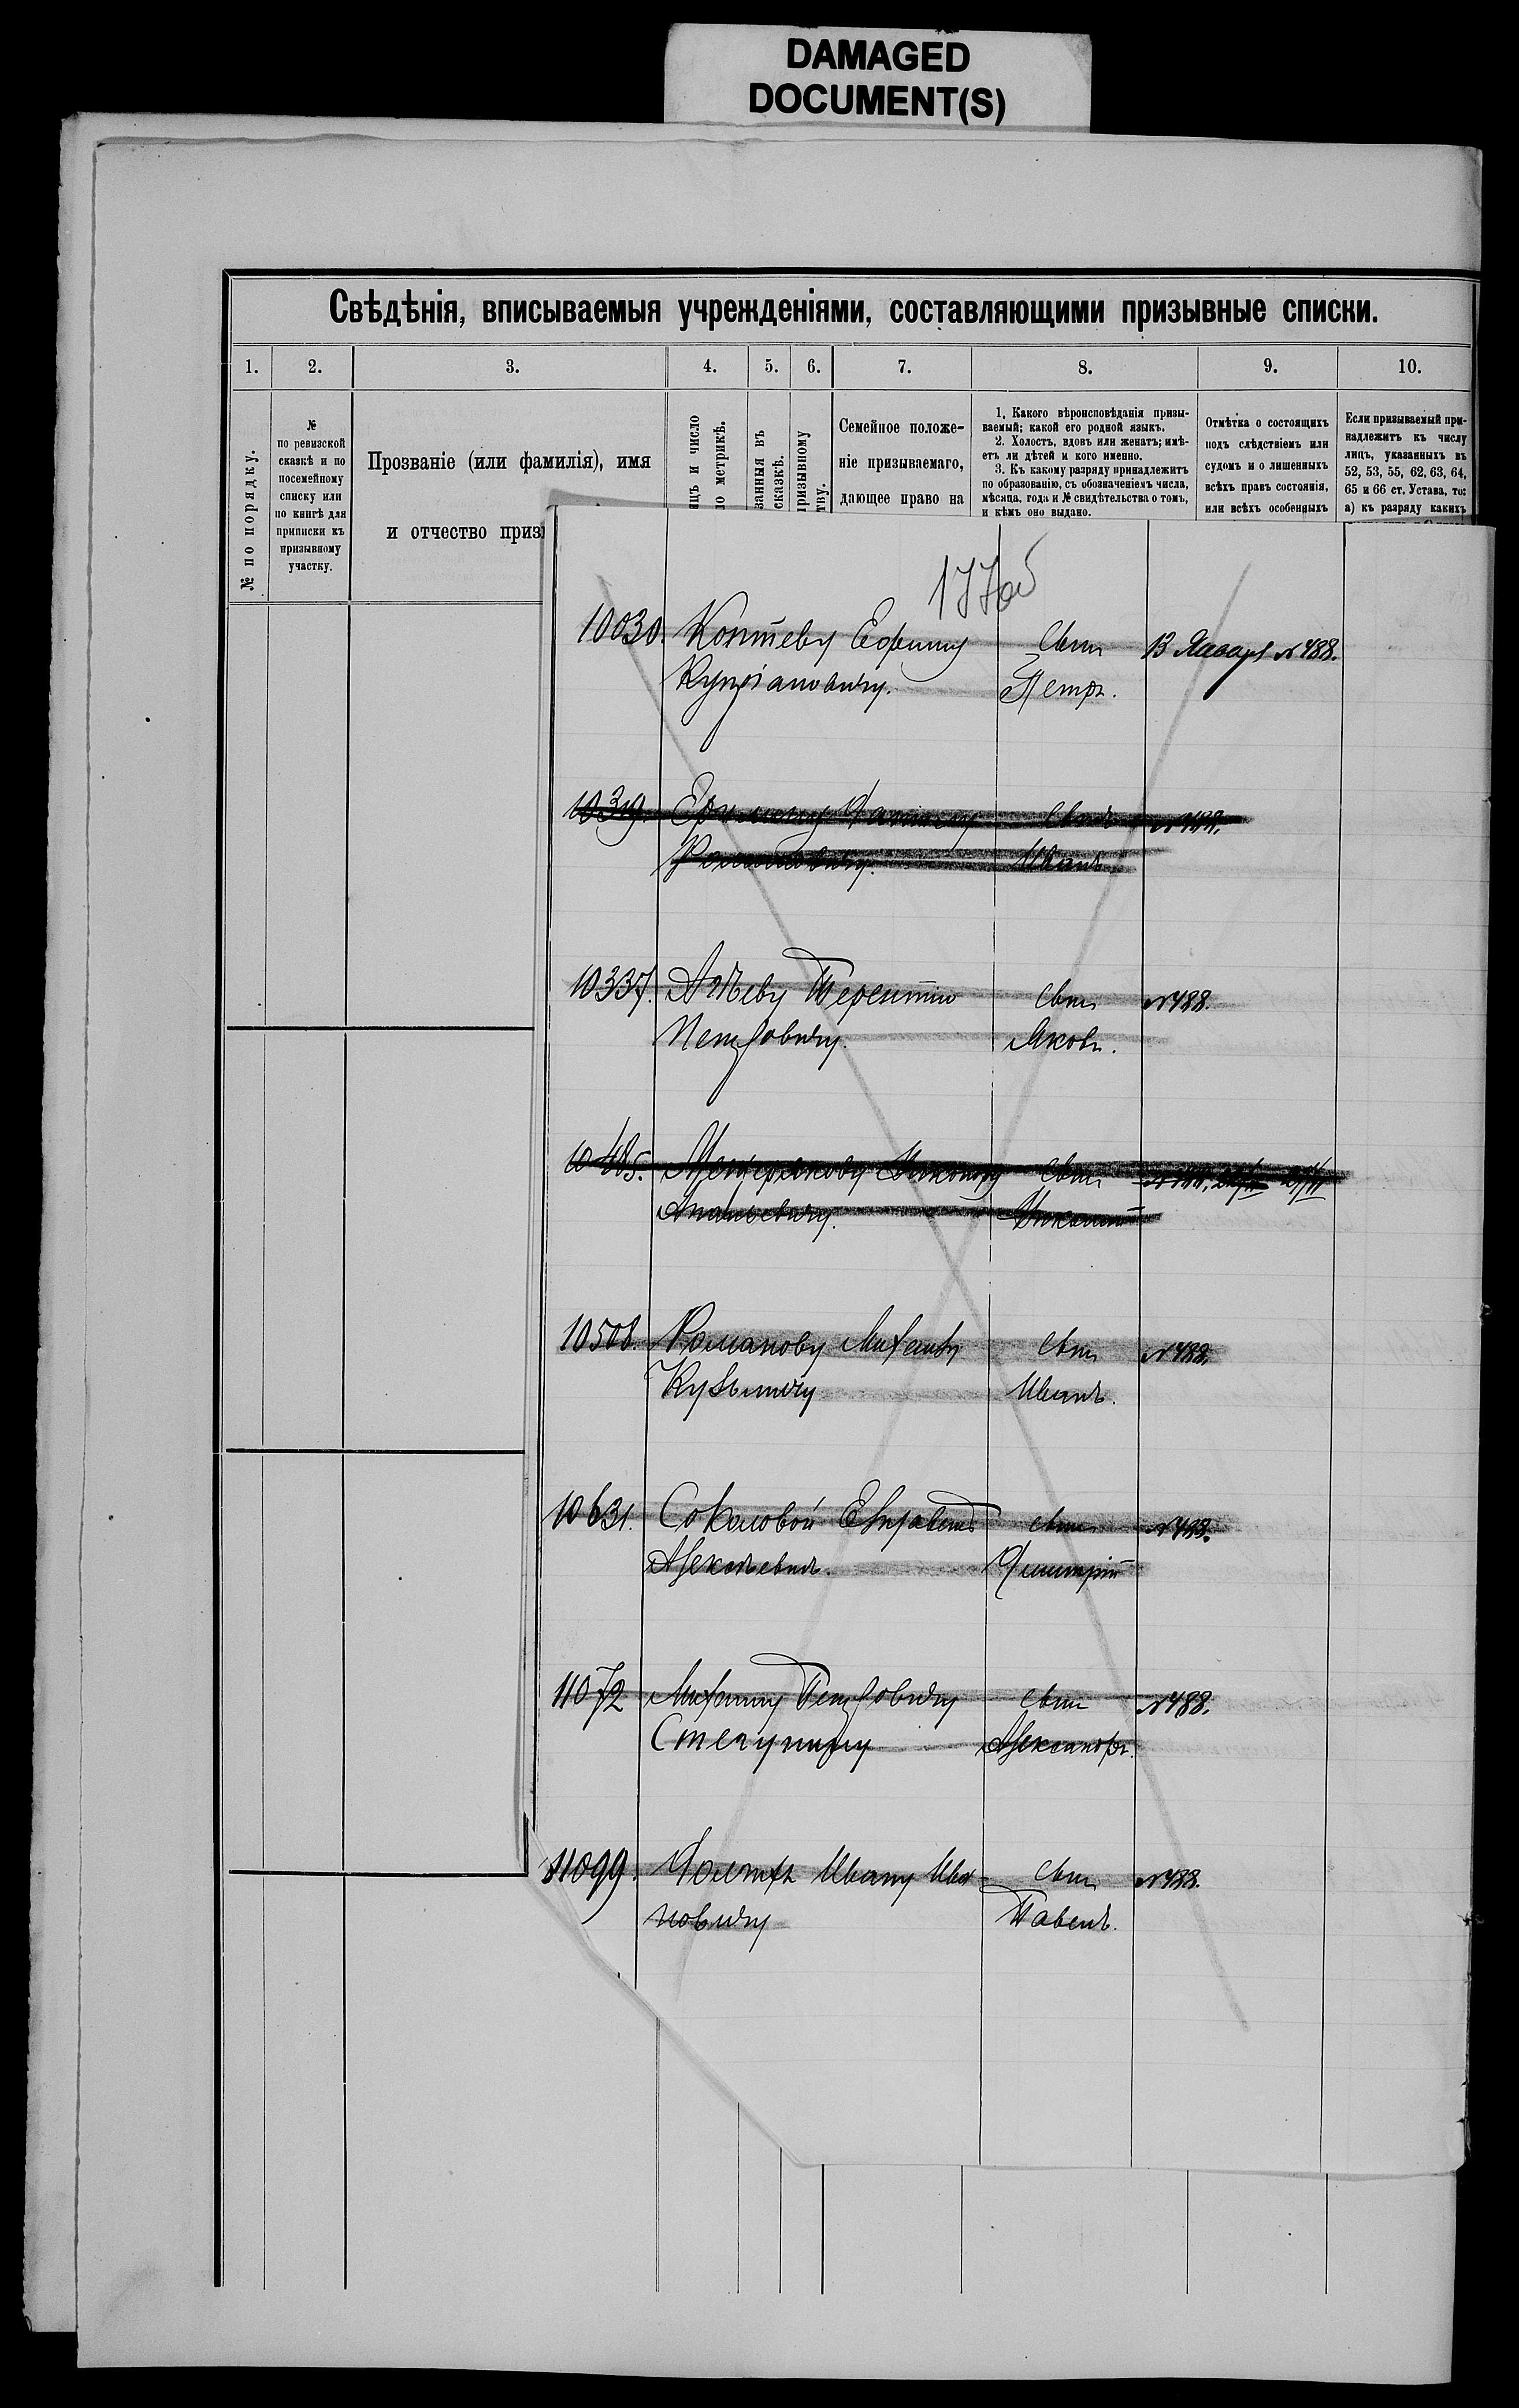 DAMAGED
DOCUMENT(S)
Свѣдѣнія, вписываемыя учрежденіями, составляющими призывные списки.
1. 2. 3. 4. 5. 6. 7. 8. 9. 10.
№ по порядку.
№
по ревизской
сказкѣ и по
посемейному
списку или
по книгѣ для
приписки къ
призывному
участку.
Прозваніе (или фамилія), имя
и отчество приз
цъ и число
о метрикѣ.
занныя въ
сказкѣ.
ризывному
тву.
Семейное положе-
ніе призываемаго,
дающее право на
1. Какого вѣроисповѣданія призы-
ваемый; какой его родной языкъ.
2. Холостъ, вдовъ или женатъ; имѣ-
етъ ли дѣтей и кого именно.
3. Къ какому разряду принадлежитъ
по образованію, съ обозначеніемъ числа,
мѣсяца, года и № свидѣтельства о томъ,
и кѣмъ оно выдано.
Отмѣтка о состоящихъ
подъ слѣдствіемъ или
судомъ и о лишенныхъ
всѣхъ правъ состоянія,
или всѣхъ особенныхъ
Если призываемый при-
надлежитъ къ числу
лицъ, указанныхъ въ
52, 53, 55, 62, 63, 64,
65 и 66 ст. Устава, то:
а) къ разряду какихъ
177об
10030. Коптеву Ефиму Сынъ 13 Января № 488.
Купріановичу. Петръ.
10319. Сынъ № 488.
Романовичу. Иванъ
10337. Терентію Сынъ № 488.
Петровичу. Яковъ.
10485. Мещерякову Сынъ
Ананьевичу. Николай
10508. Романову Сынъ № 488.
Кузьмичу Иванъ.
10631. Соколовой Елизаветѣ Сынъ № 488.
Алексѣевнѣ. Дмитрій
11072 Михаилу Петровичу Сынъ № 488.
Александръ.
11099. Ивану Ива- Сынъ № 488.
новичу Павелъ.